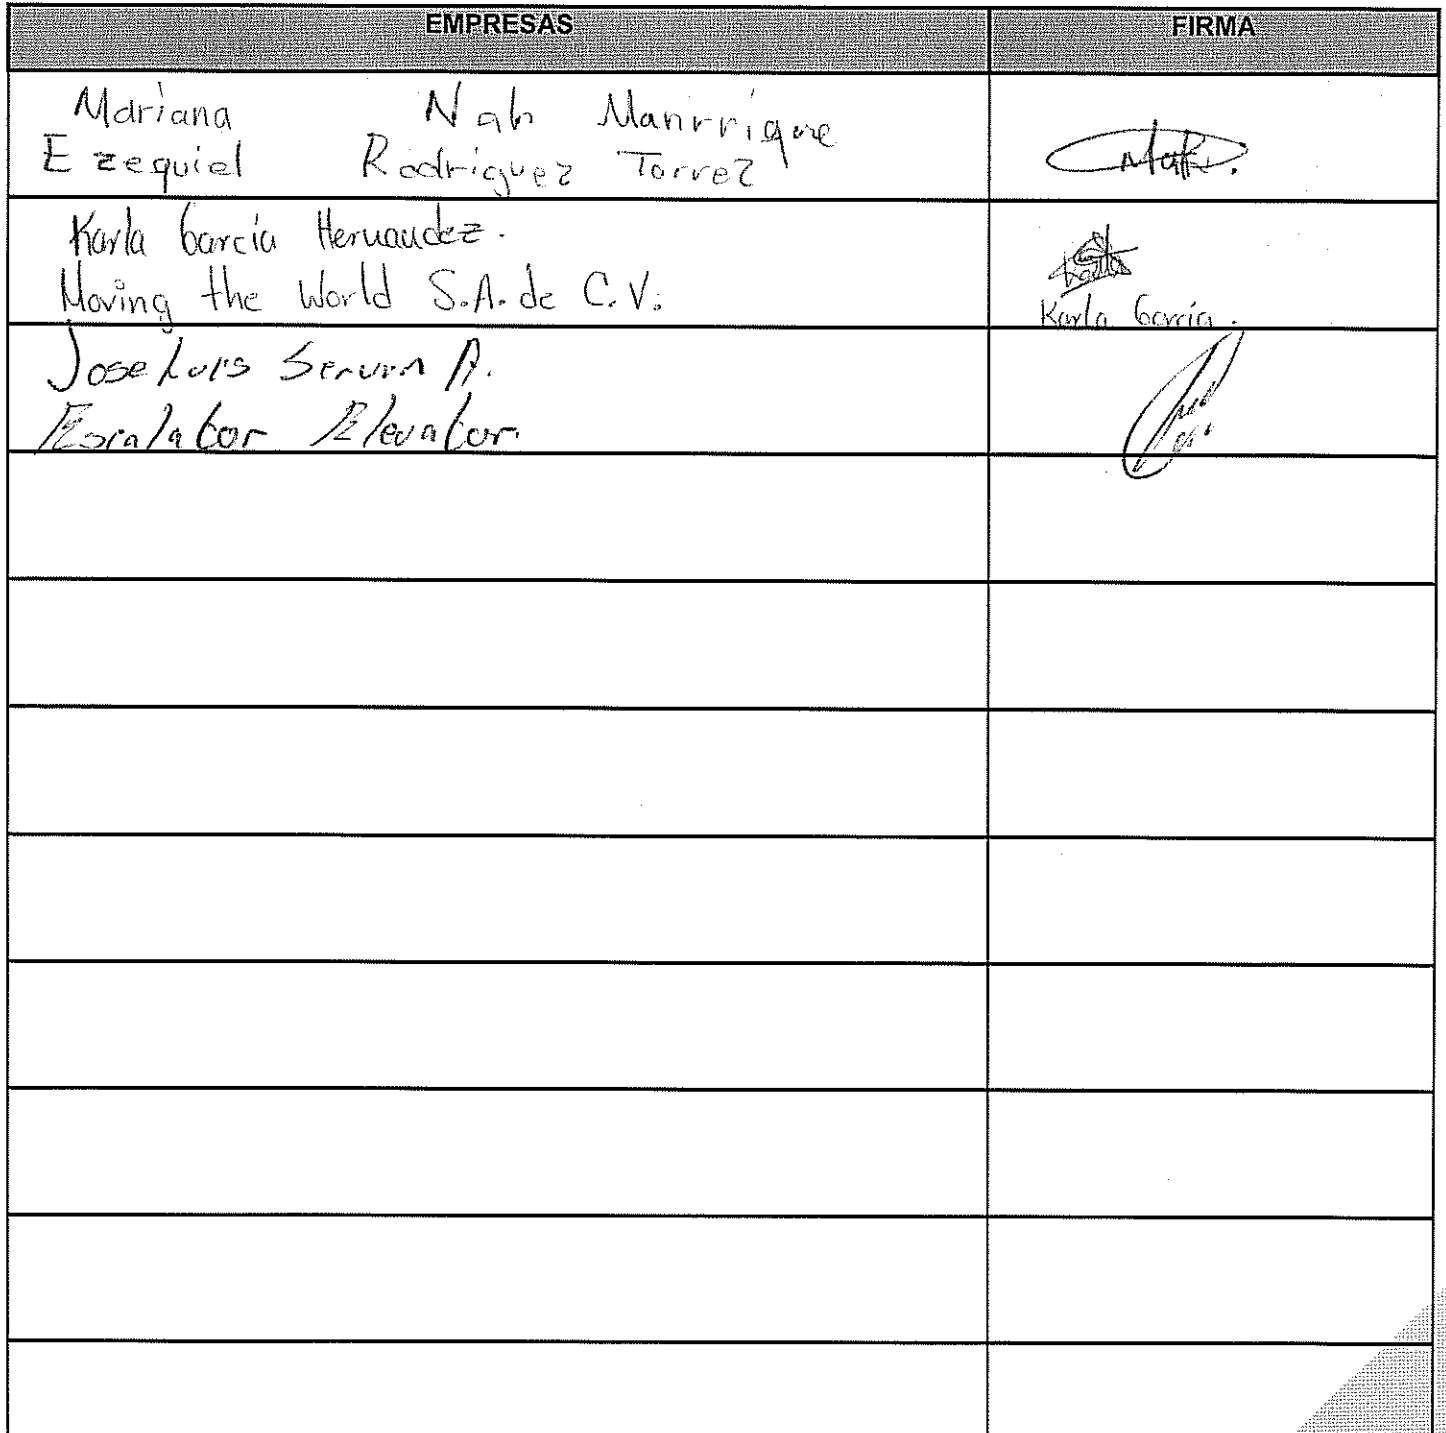 EMPRESAS FIRMA
Mariana Nah Manrrique
Ezequiel Rodriguez Torrez
Karla García Hernandez.
Moving the World S.A. de C.V.
Karla García.
Jose Luis Servin A.
Escalator Elevator.